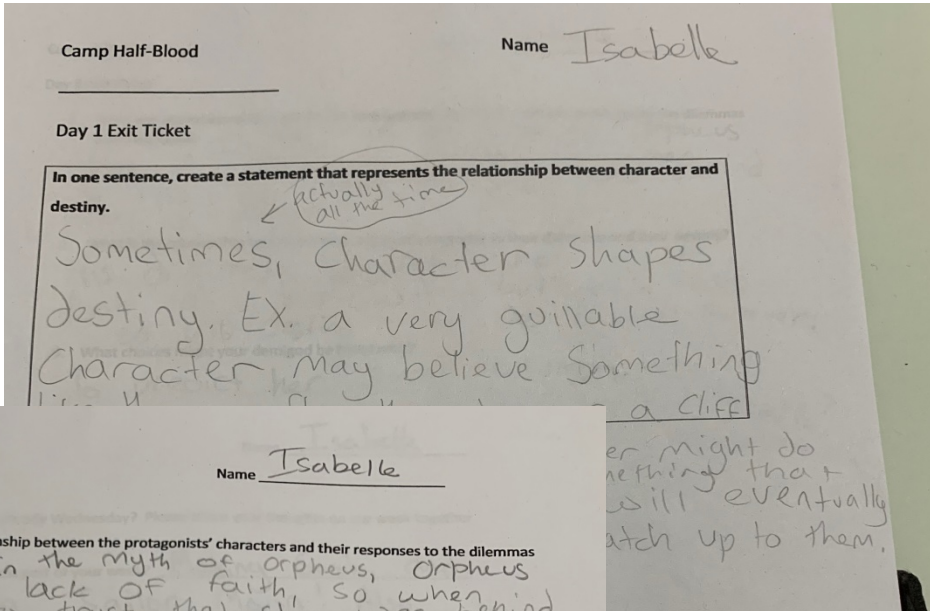 Camp Half-Blood
Name Isabelle
Day 1 Exit Ticket
In one sentence, create a statement that represents the relationship between character and
destiny.
actually
all the time
Sometimes, Character Shapes
destiny. EX. a very guillable
Character May believe Something
a Cliff
might do
that
will eventually
up to them.
Name Isabelle
between the protagonists' characters and their responses to the dilemmas
the Myth of orpheus, Orpheus
lack of faith, so when